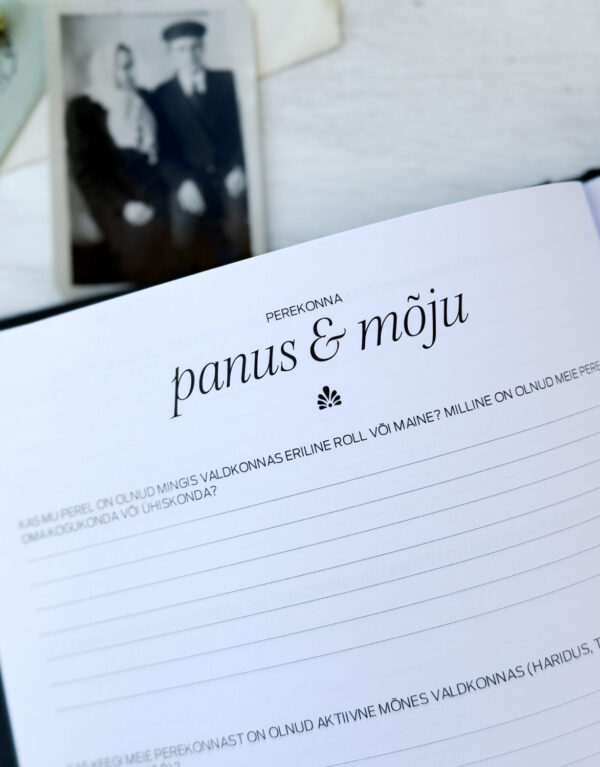 PEREKONNA
panus & mõju
KAS MU PEREL ON OLNUD MINGIS VALDKONNAS ERILINE ROLL VÕI MAINE? MILLINE ON OLNUD MEIE PERE
OMA KOGUKONDA VÕI ÜHISKONDA?
KEEGI MEIE PEREKONNAST ON OLNUD AKTIIVNE MÕNES VALDKONNAS (HARIDUS, T